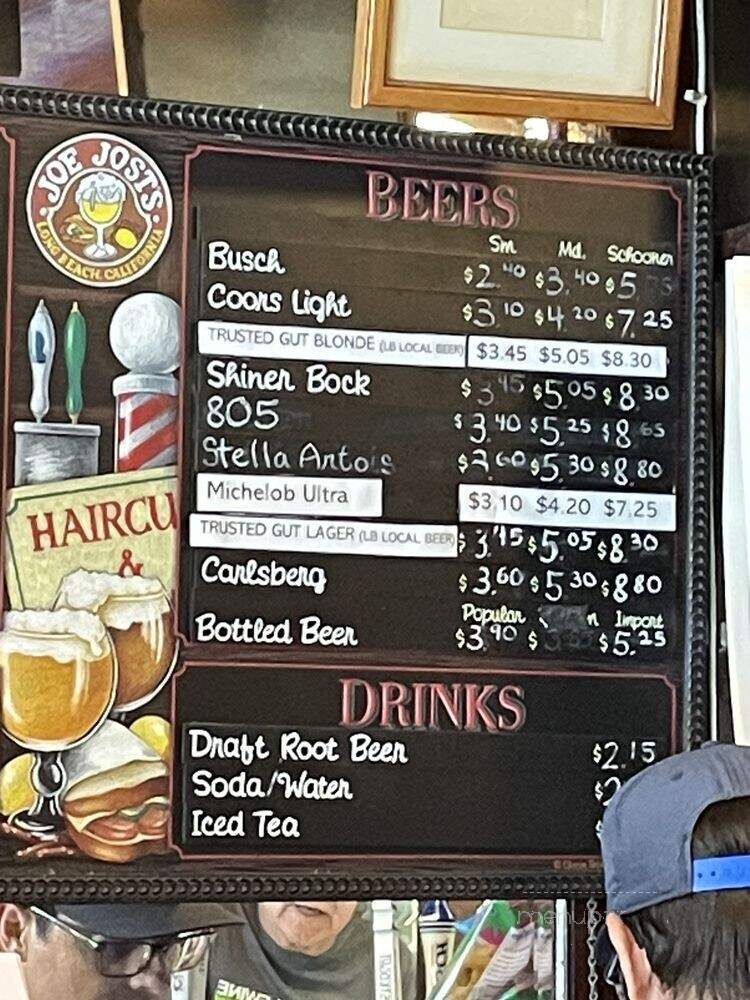 JOE JOST'S
LONG BEACH, CALIFORNIA
HAIRCU
&
BEERS
Sm Md. Schooner
Busch $2.40 $3.40 $5
Coors Light $3.10 $4.20 $7.25
TRUSTED GUT BLONDE (LB LOCAL BEER) $3.45 $5.05 $8.30
Shiner Bock $3.45 $5.05 $8.30
805 $3.40 $5.25 $8.65
Stella Artois $3.60 $5.30 $8.80
Michelob Ultra $3.10 $4.20 $7.25
TRUSTED GUT LAGER (LB LOCAL BEER) $3.45 $5.05 $8.30
Carlsberg $3.60 $5.30 $8.80
Popular n Import
Bottled Beer $3.90 $ $5.25
DRINKS
Draft Root Beer $2.15
Soda/Water $2
Iced Tea $
menupix